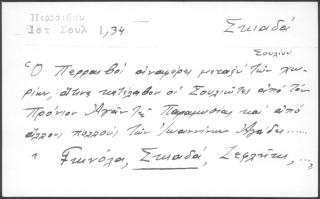 Περραιβου
Ιστ Σουλ 1,34
Σκιαδά
Σουλίου
Ὁ Περραιβός ἀναφέρει μεταξύ τῶν χω-
ρίων, ἅτινα κατέλαβον οἱ Σουλιῶτες ἀπό τόν
Πρόνιον Ἀγᾶν τῆς Παραμυθίας καί ἀπό
ἄλλους πολλούς τῶν Ἰωαννίνων Ἀγάδες......
Γκινόλα, Σκιαδά, Ζεφλήτι, ...